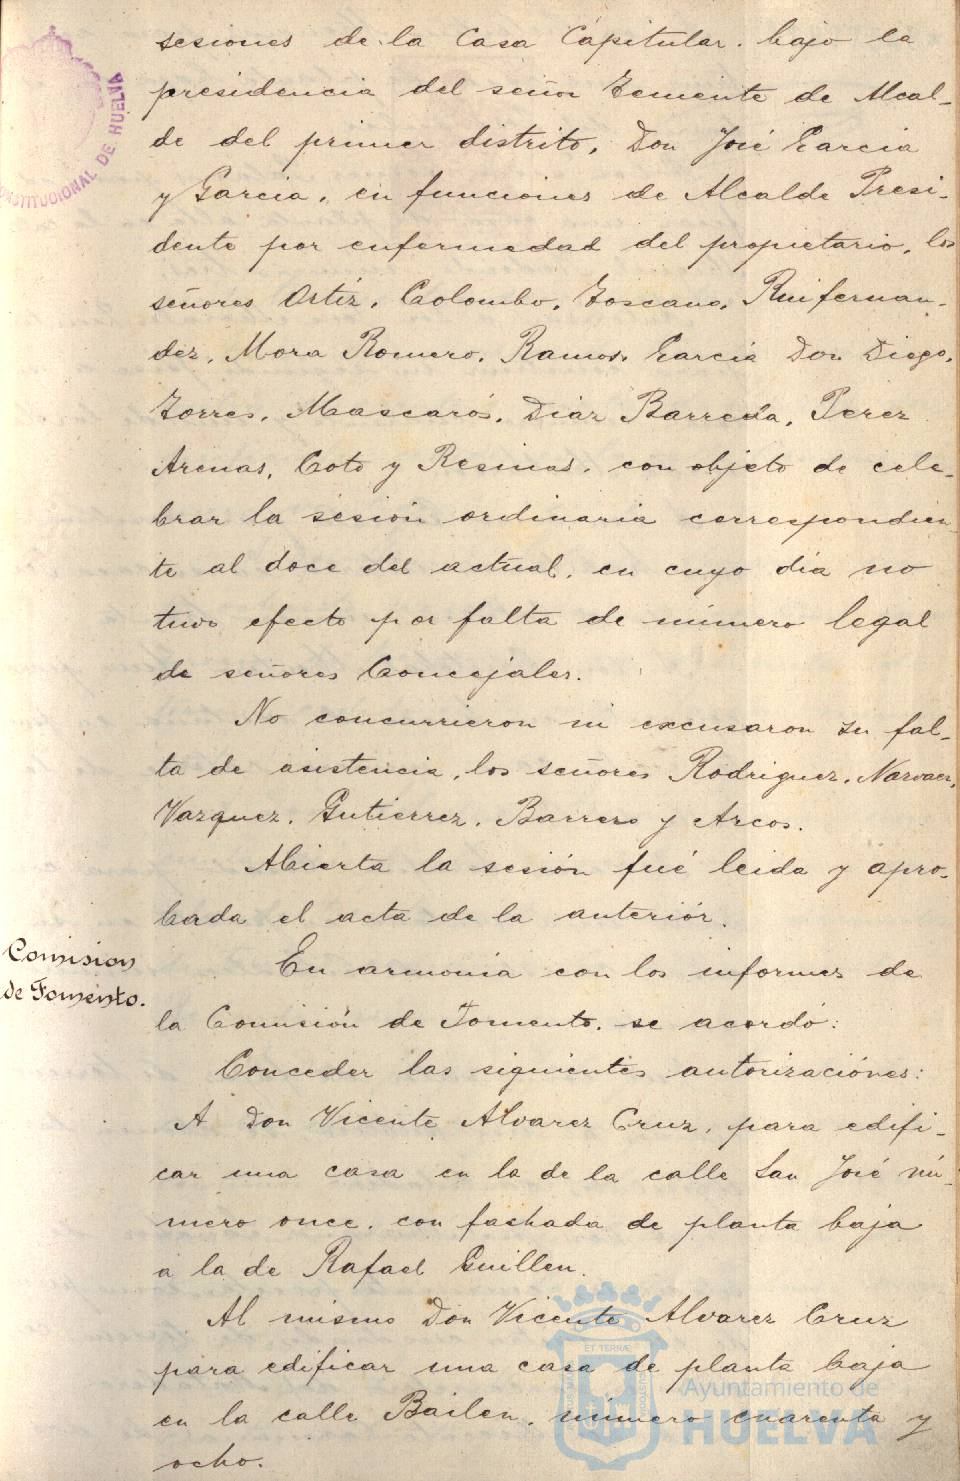 sesiones de la Casa Capitular. bajo la
presidencia del señor Teniente de Alcal-
de del primer distrito, Don José Garcia
y Garcia, en funciones de Alcalde Presi-
dente por enfermedad del propietario, los
señores Ortiz, Colombo, Toscano, Ruifernan-
dez, Mora Romero, Ramos, Garcia Don Diego,
Torres, Mascarós, Diaz Barreda, Perez
Arenas, Coto y Resinas, con objeto de cele-
brar la sesión ordinaria correspondien-
te al doce del actual, en cuyo dia no
tuvo efecto por falta de número legal
de señores Concejales.
No concurrieron ni excusaron su fal-
ta de asistencia, los señores Rodriguez, Narvaez,
Vazquez, Gutierrez, Barrero y Arcos.
Abierta la sesión fué leida y apro-
bada el acta de la anteriór.
Comision
de Fomento.
En armonia con los informes de
la Comisión de Fomento, se acordó:
Conceder las siguientes autorizaciónes:
A Don Vicente Alvarez Cruz, para edifi-
car una casa en la de la calle San José nú-
mero once, con fachada de planta baja
a la de Rafael Guillen.
Al mismo Don Vicente Alvarez Cruz
para edificar una casa de planta baja
en la calle Bailen, número cuarenta y
ocho.
CONSTITUCIONAL DE HUELVA
ET TERRÆ
Ayuntamiento de
HUELVA